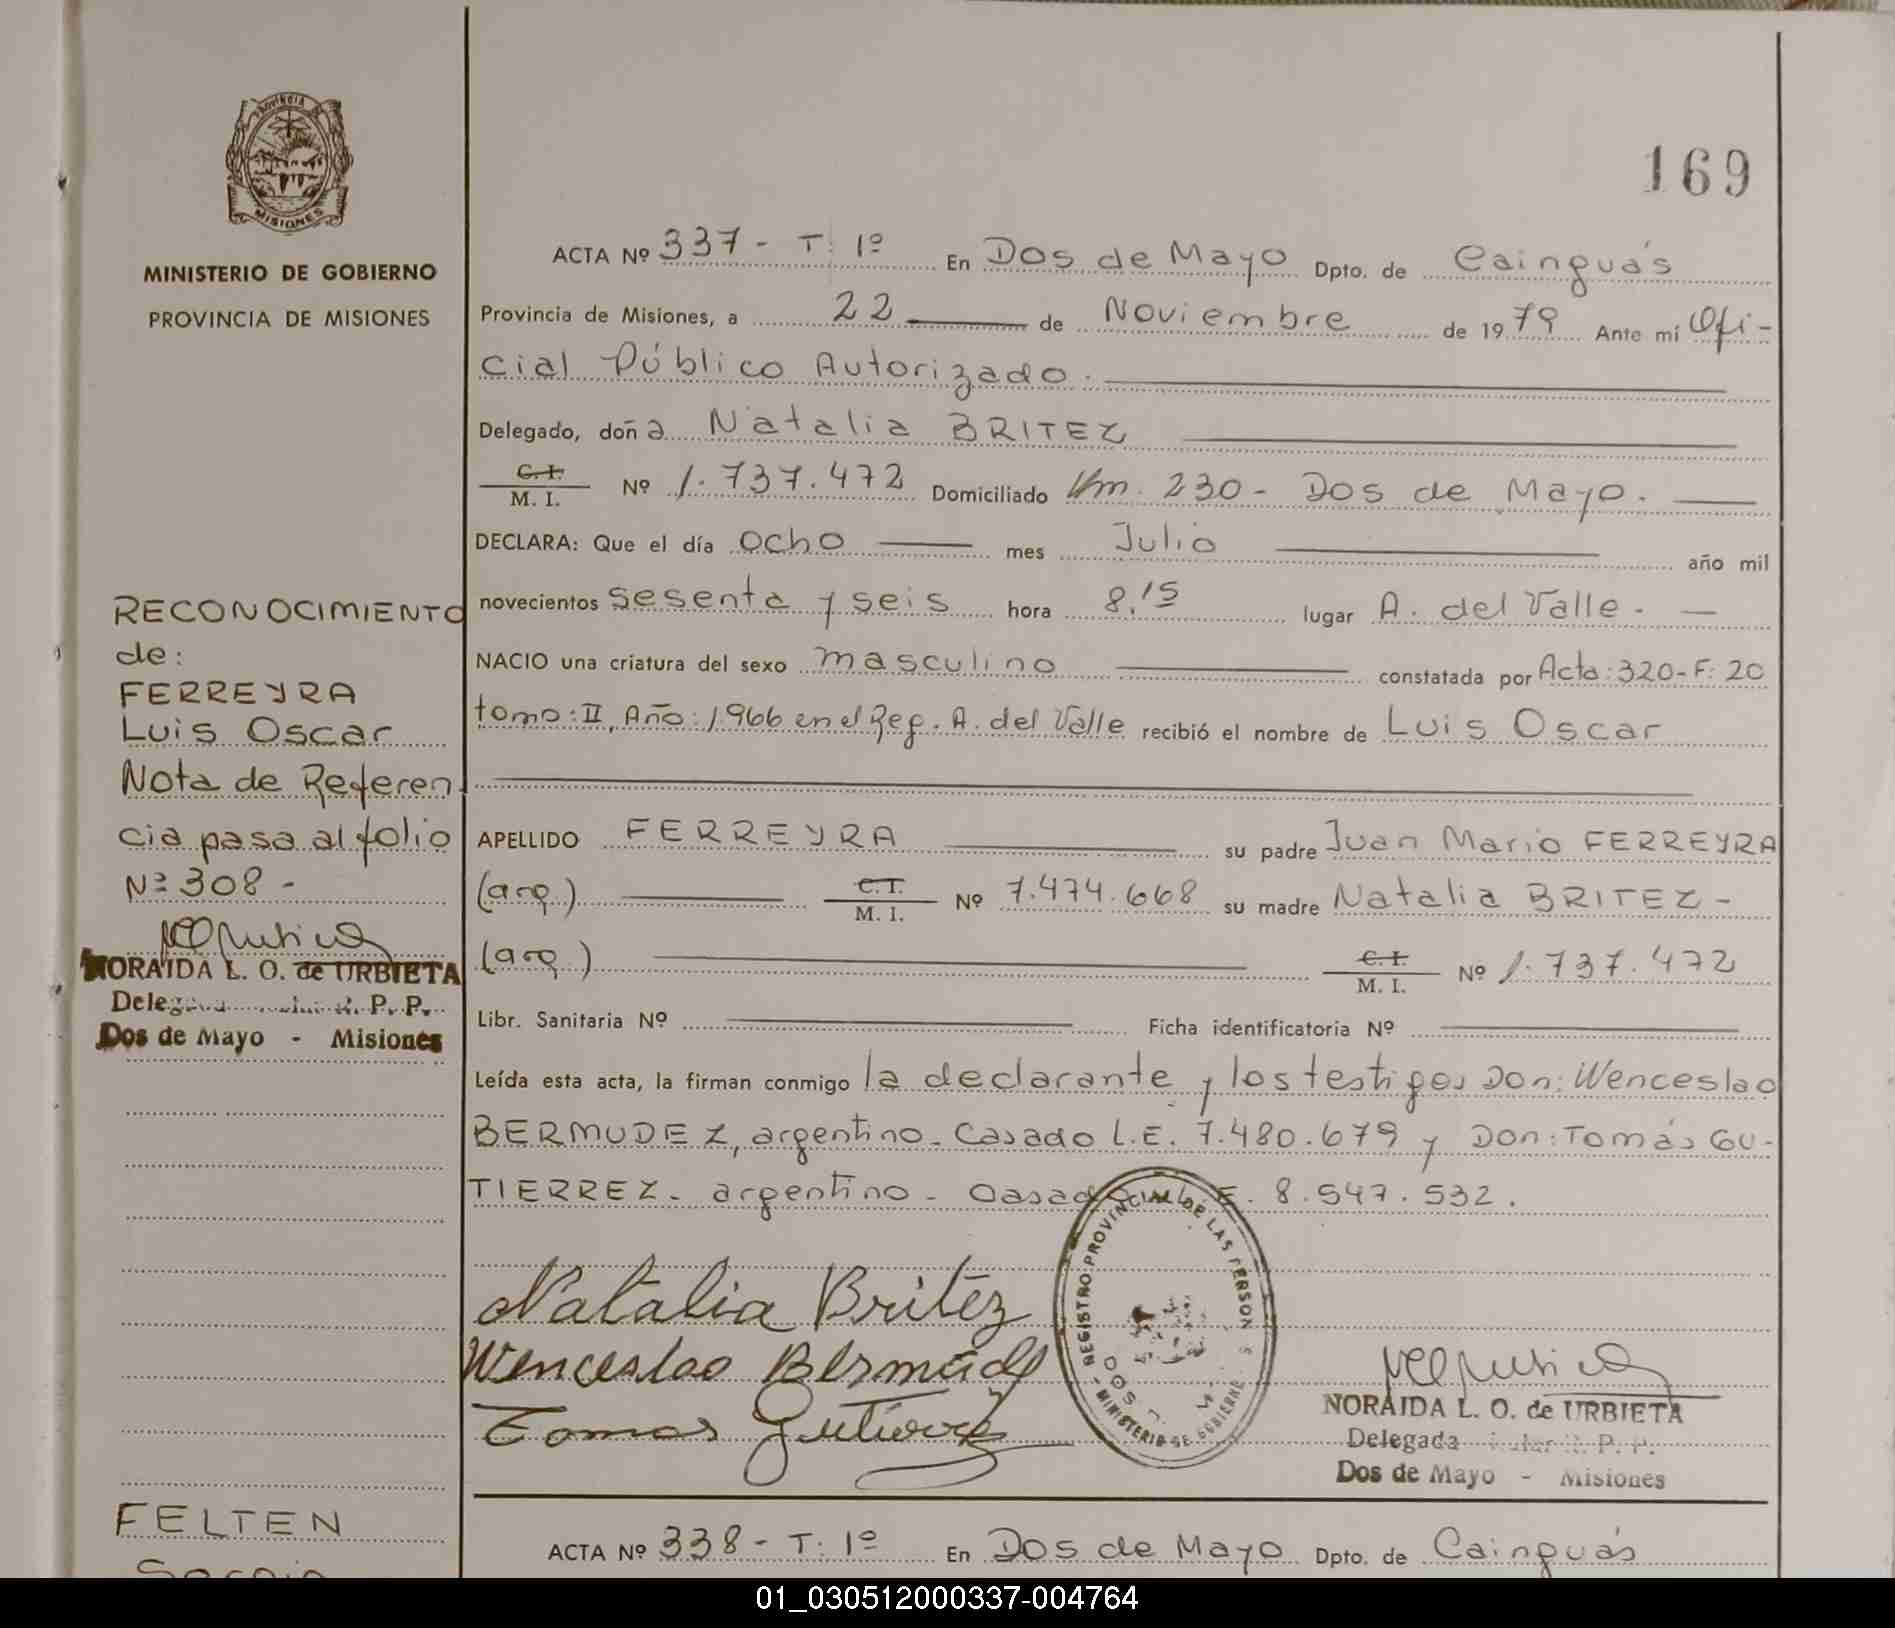 PROVINCIA DE
MISIONES
MINISTERIO DE GOBIERNO
PROVINCIA DE MISIONES
169
ACTA Nº 337 - T: 1º En Dos de Mayo Dpto. de Cainguás
Provincia de Misiones, a 22 de Noviembre de 1979 Ante mí Ofi-
cial Público Autorizado.
Delegado, doña Natalia BRITEZ
C. I.
M. I. Nº 1.737.472 Domiciliado Km. 230 - Dos de Mayo.
DECLARA: Que el día ocho mes Julio año mil
novecientos sesenta y seis hora 8,15 lugar A. del Valle.
NACIO una criatura del sexo masculino constatada por Acta: 320-F: 20
tomo: II, Año: 1.966 en el Reg. A. del Valle recibió el nombre de Luis Oscar
APELLIDO FERREYRA su padre Juan Mario FERREYRA
(arg.) C. I.
M. I. Nº 7.474.668 su madre Natalia BRITEZ -
(arg.) C. I.
M. I. Nº 1.737.472
Libr. Sanitaria Nº Ficha identificatoria Nº
Leída esta acta, la firman conmigo la declarante y los testigos Don: Wenceslao
BERMUDEZ, argentino - Casado L.E. 7.480.679 y Don: Tomás GU-
TIERREZ - argentino - Casado L.E. 8.547.532.
Natalia Britez
Wenceslao Bermudez
Tomas Gutierrez
REGISTRO PROVINCIAL DE LAS PERSON S
MINISTERIO DE GOBIERN
DOS
NORAIDA L. O. de URBIETA
Delegada R. P. P.
Dos de Mayo - Misiones
RECONOCIMIENTO
de:
FERREYRA
Luis Oscar
Nota de Referen
cia pasa al folio
Nº 308 -
NORAIDA L. O. de URBIETA
R. P. P.
Dos de Mayo - Misiones
FELTEN
ACTA Nº 338 - T: 1º En Dos de Mayo Dpto. de Cainguás
01_030512000337-004764